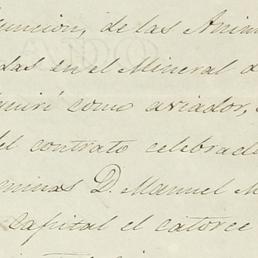 uncion, de las Anim
das en el Mineral d
quiré como aviador,
del contrato celebrado
minas D. Manuel M
Capital el catorce